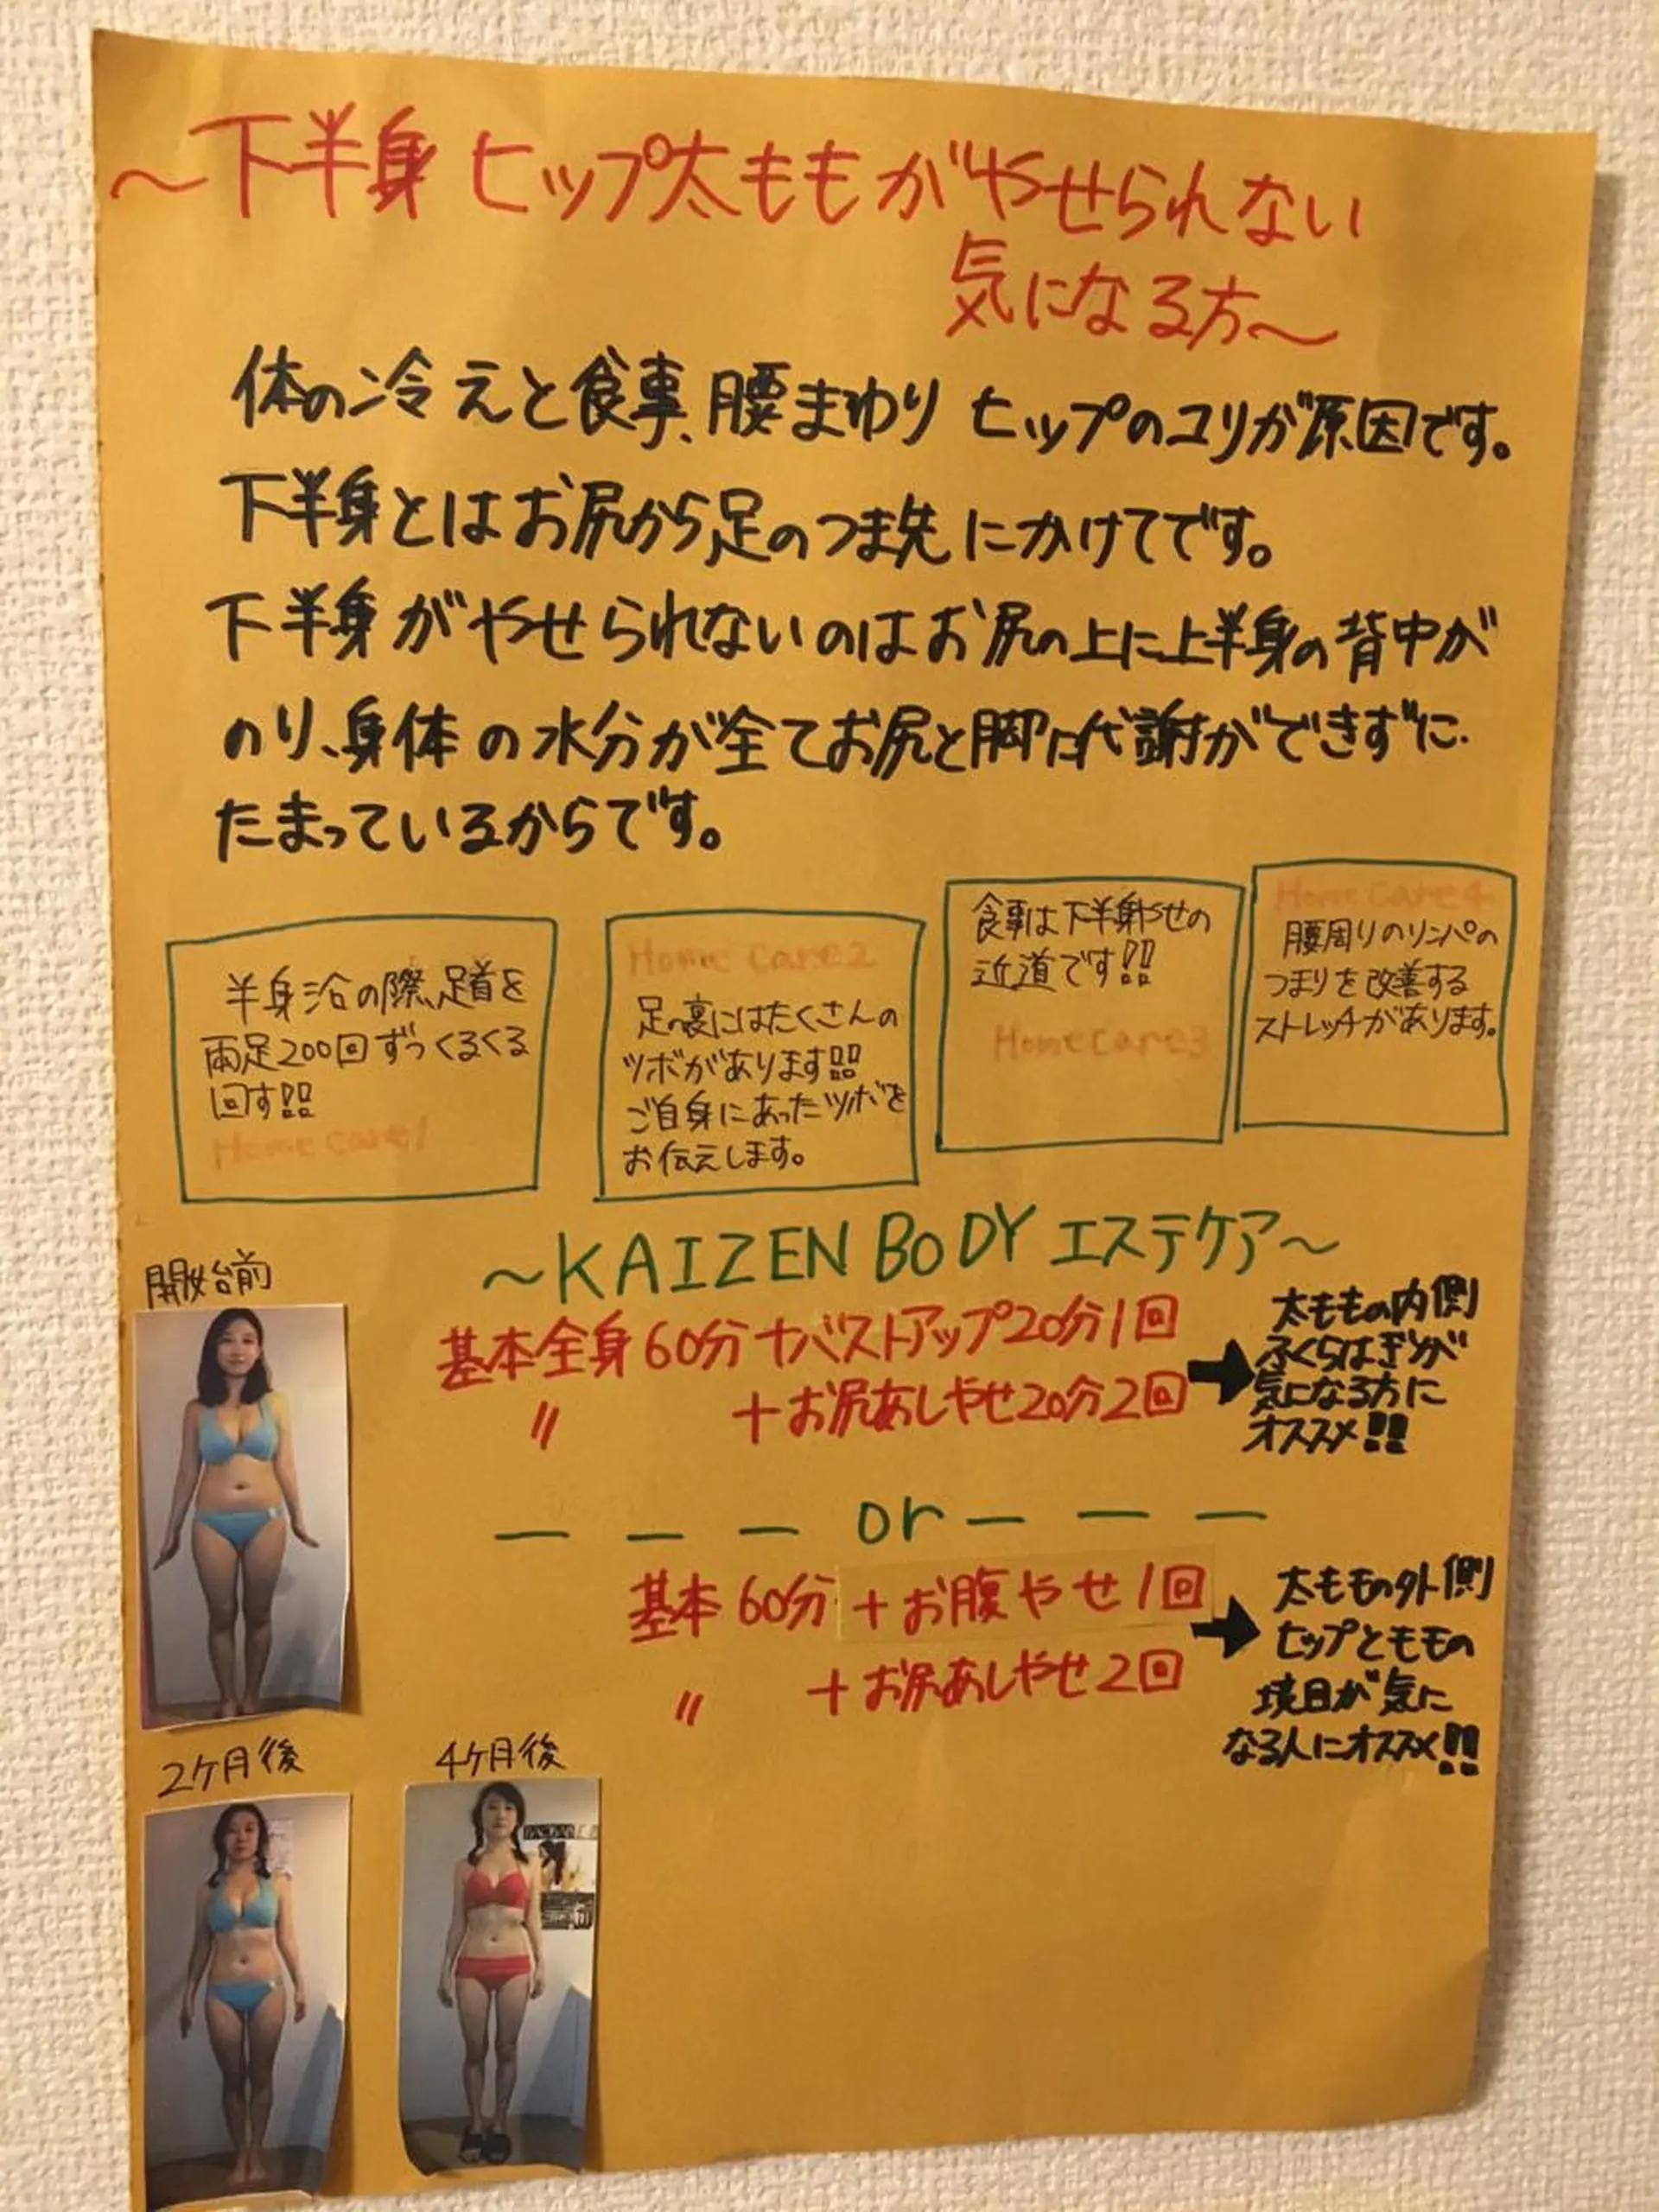 〜下半身 ヒップ太ももがやせられない
気になる方〜
体の冷えと食事、腰まわり ヒップのコリが原因です。
下半身とはお尻から足のつま先にかけてです。
下半身がやせられないのはお尻の上に上半身の背中が
のり、身体の水分が全てお尻と脚に代謝ができずに
たまっているからです。
半身浴の際、足首を
両足200回ずつくるくる
回す!!
Home care1
Home care2
足の裏にはたくさんの
ツボがあります!!
ご自身にあったツボを
お伝えします。
食事は下半身やせの
近道です!!
Home care3
Home care4
腰周りのリンパの
つまりを改善する
ストレッチがあります。
〜KAIZEN BODY エステケア〜
基本全身60分+バストアップ20分1回
〃 +お尻あしやせ20分2回
太ももの内側
ふくらはぎが
気になる方に
オススメ!!
― ― ― or ― ― ―
基本60分+お腹やせ1回
〃 +お尻あしやせ2回
太ももの外側
ヒップとモモの
境目が気に
なる人にオススメ!!
開始前
2ケ月後
4ケ月後